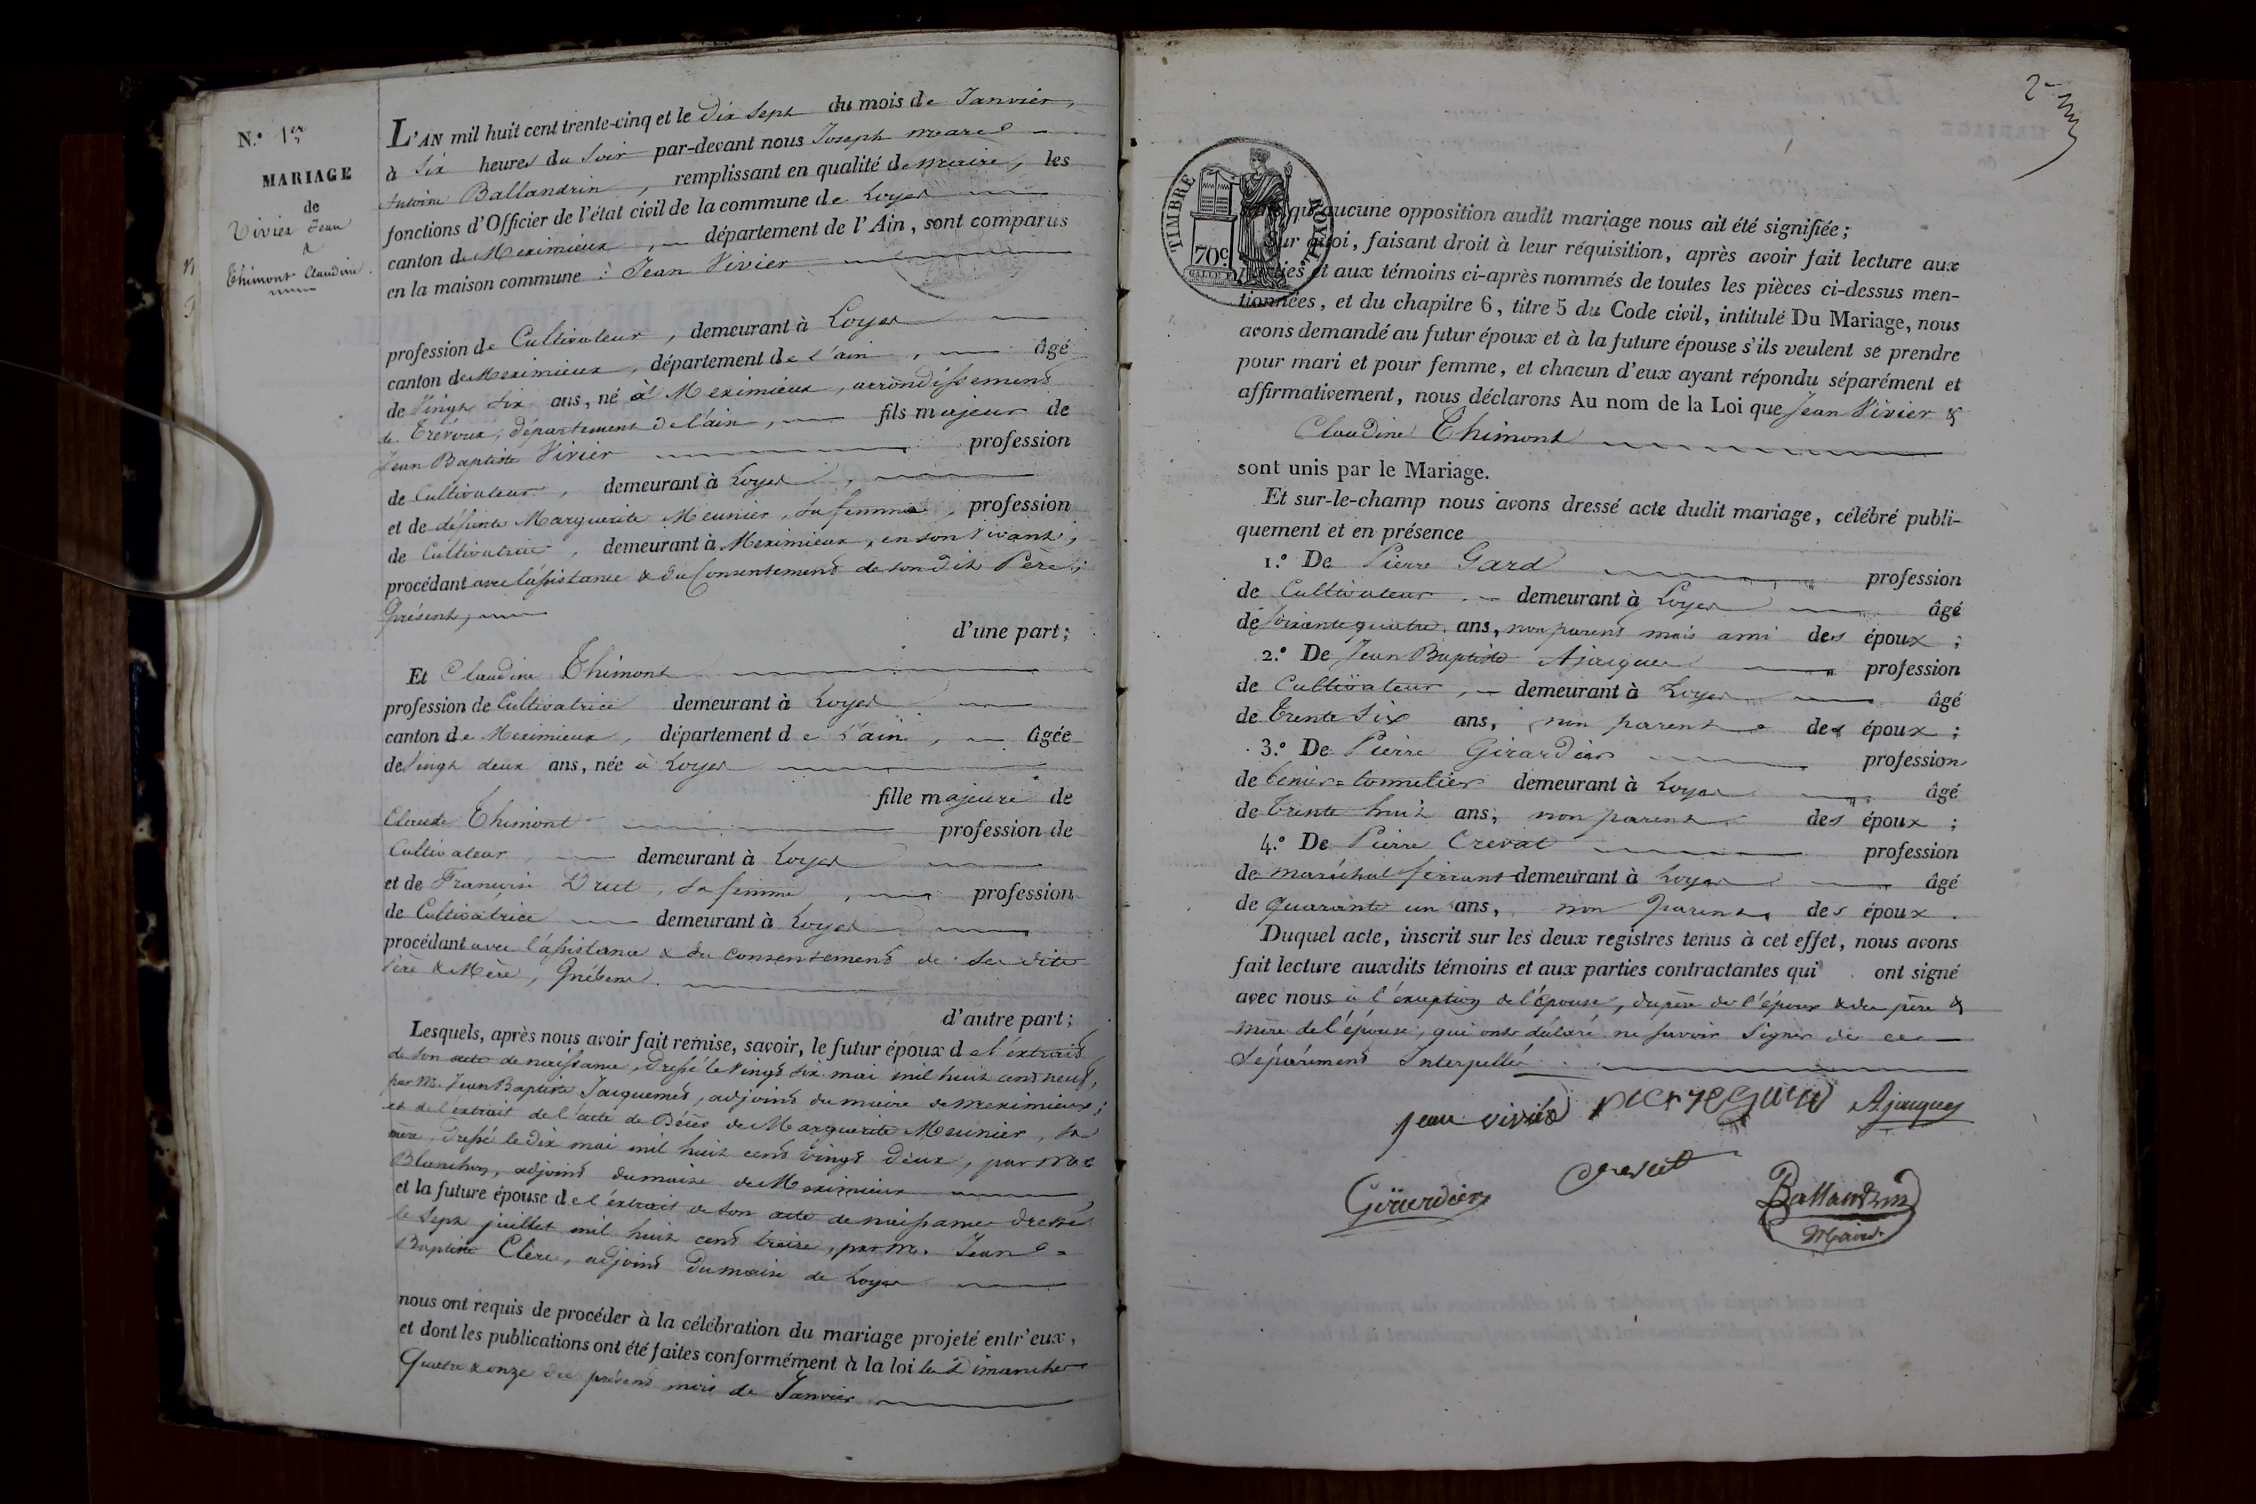 N.º 1er
MARIAGE
de
Vivier Jean
&
Thimont Claudine
L'AN mil huit cent trente-cinq et le Dix Sept du mois de Janvier,
à Six heures du Soir par-devant nous Joseph Marie
Antoine Ballandrin, remplissant en qualité de maire, les
fonctions d'Officier de l'état civil de la commune de Loyes
canton de Meximieux, département de l'Ain, sont comparus
en la maison commune : Jean Vivier
profession de Cultivateur, demeurant à Loyes
canton de Meximieux, département de l'ain, âgé
de Vingt Six ans, né à Meximieux, arrondissement
de Trévoux, département de l'ain, fils majeur de
Jean Baptiste Vivier profession
de Cultivateur, demeurant à Loyes,
et de défunte Marguerite Meunier, sa femme, profession
de Cultivatrice, demeurant à Meximieux, en son Vivant,
procédant avec l'assistance & du Consentement de son dit Père,
Présent,
d'une part;
Et Claudine Thimont
profession de Cultivatrice demeurant à Loyes
canton de Meximieux, département de l'ain, âgée
de Vingt deux ans, née à Loyes
fille majeure de
Claude Thimont profession de
Cultivateur, demeurant à Loyes
et de Françoise Druet, sa femme, profession
de Cultivatrice demeurant à Loyes
procédant avec l'assistance & du consentement de Ses dits
Père & Mère, Présens.
d'autre part;
Lesquels, après nous avoir fait remise, savoir, le futur époux de l'extrait
de son acte de naissance, Dressé le Vingt Six mai mil huit cent neuf,
par Mr. Jean Baptiste Jacquemet, adjoint du maire de Meximieux;
et de l'extrait de l'acte de Décès de Marguerite Meunier, sa
mère, Dressé le Dix mai mil huit cent vingt Deux, par Mr
Blanchon, adjoint du maire de Meximieux
et la future épouse de l'extrait de son acte de naissance Dressé
le Sept juillet mil huit cent treize, par Mr. Jean
Baptiste Clerc, adjoint Du maire de Loyes
nous ont requis de procéder à la célébration du mariage projeté entr'eux,
et dont les publications ont été faites conformément à la loi les Dimanches
Quatre & onze du présent mois de Janvier
2e
TIMBRE ROYAL
70c
qu'aucune opposition audit mariage nous ait été signifiée;
Sur quoi, faisant droit à leur réquisition, après avoir fait lecture aux
parties et aux témoins ci-après nommés de toutes les pièces ci-dessus men-
tionnées, et du chapitre 6, titre 5 du Code civil, intitulé Du Mariage, nous
avons demandé au futur époux et à la future épouse s'ils veulent se prendre
pour mari et pour femme, et chacun d'eux ayant répondu séparément et
affirmativement, nous déclarons Au nom de la Loi que Jean Vivier &
Claudine Thimont
sont unis par le Mariage.
Et sur-le-champ nous avons dressé acte dudit mariage, célébré publi-
quement et en présence
1.º De Pierre Gard profession
de Cultivateur demeurant à Loyes âgé
de Soixante quatre ans, non parent mais ami des époux;
2.º De Jean Baptiste Ajacques profession
de Cultivateur, demeurant à Loyes âgé
de Trente Six ans, non parent des époux;
3.º De Pierre Girardier profession
de tonnelier demeurant à Loyes âgé
de Trente huit ans, non parent des époux;
4.º De Pierre Crevat profession
de maréchal ferrant demeurant à Loyes âgé
de quarante un ans, non parent des époux.
Duquel acte, inscrit sur les deux registres tenus à cet effet, nous avons
fait lecture auxdits témoins et aux parties contractantes qui ont signé
avec nous à l'exception de l'épouse, du père de l'époux & du père &
mère de l'épouse, qui ont déclaré ne savoir Signer de ce
Séparément Interpellés
jean vivier pierre gard Ajacques
Girardier Crevat Ballandrin
Maire